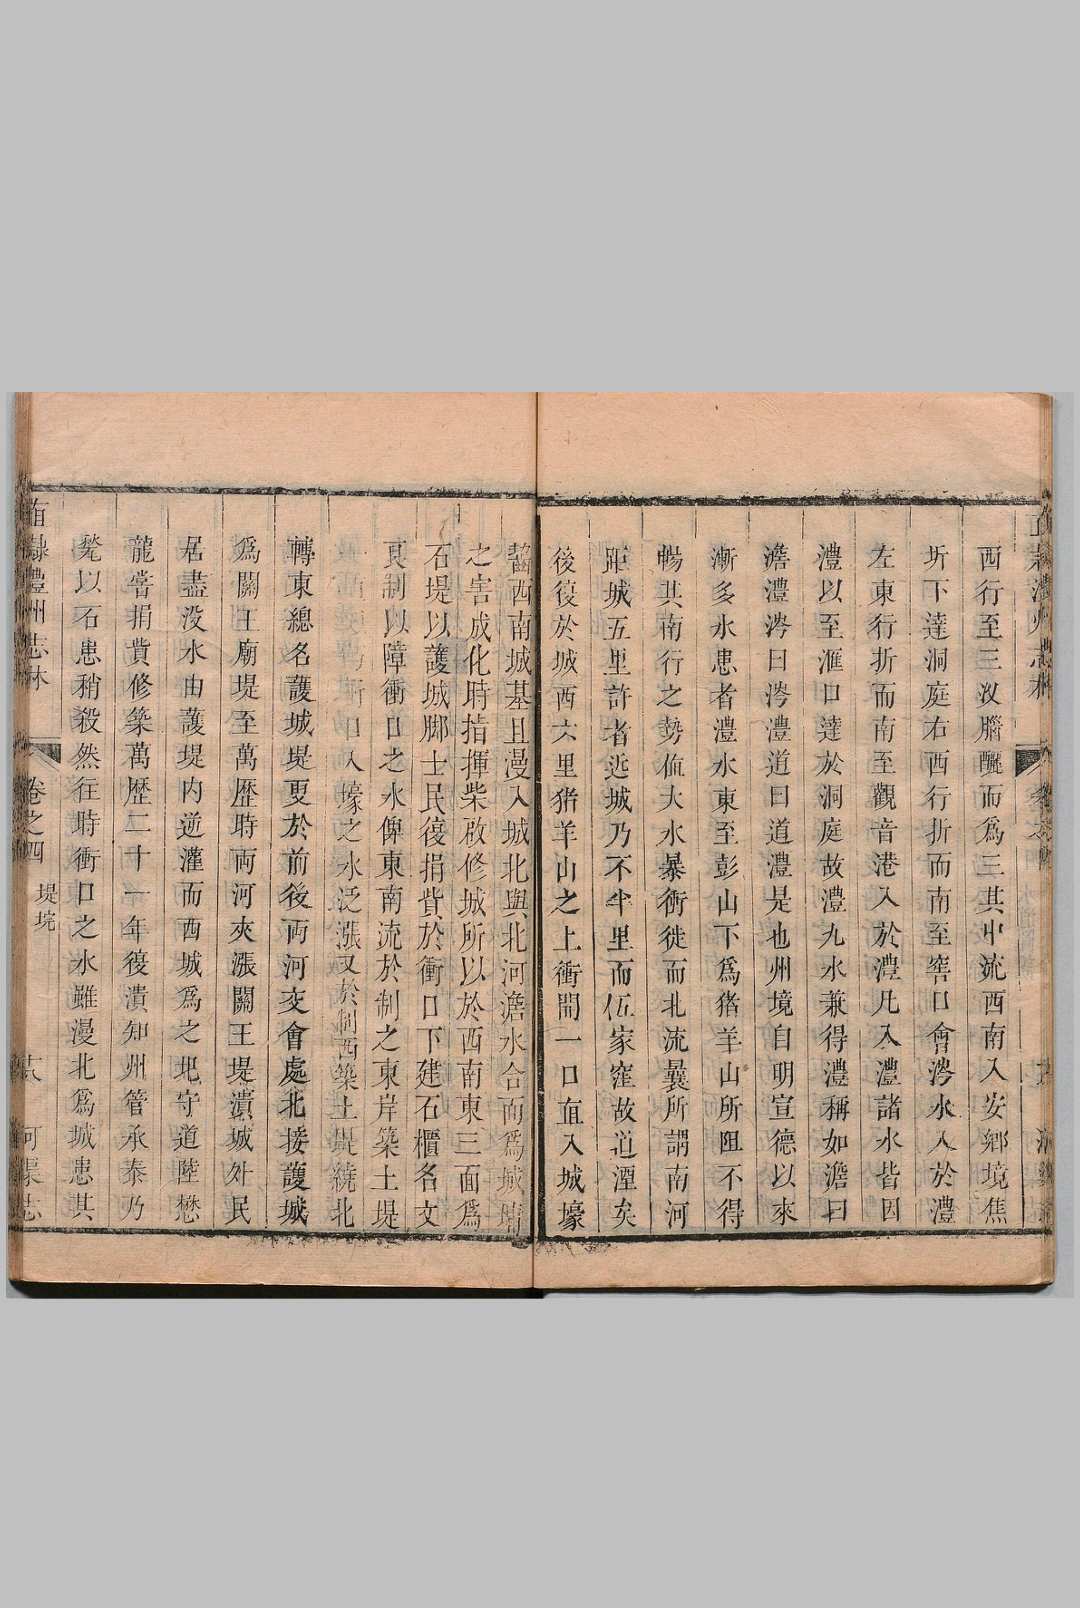 西行至三汊腦釃而爲三其中流西南入安鄉境焦
圻下達洞庭右西行折而南至窖口會涔水入於澧
左東行折而南至觀音港入於澧凡入澧諸水皆因
澧以至滙口達於洞庭故澧九水兼得澧稱如澹曰
澹澧涔曰涔澧道曰道澧是也州境自明宣德以來
漸多水患者澧水東至彭山下爲猪羊山所阻不得
暢其南行之勢值大水暴衝徙而北流曩所謂南河
距城五里許者近城乃不半里而伍家窪故道湮矣
後復於城西六里猪羊山之上衝開一口直入城壕
齧西南城基且漫入城北與北河澹水合而爲城
之害成化時指揮柴啟修城所以於西南東三面爲
石堤以護城脚士民復捐貲於衝口下建石櫃名文
良制以障衝口之水俾東南流於制之東岸築土堤
衝口入壕之水泛漲又於制西築土堤繞北
轉東總名護城堤更於前後両河交會處北接護城
爲關王廟堤至萬歷時両河夾漲關王堤潰城外民
居盡没水由護堤内逆灌而西城爲之圯守道陸懋
龍嘗捐貲修築萬歷二十一年復潰知州管承泰乃
甃以石患稍殺然往時衝口之水雖漫北爲城患其
直隸澧州志林
卷之四
堤垸
河渠志